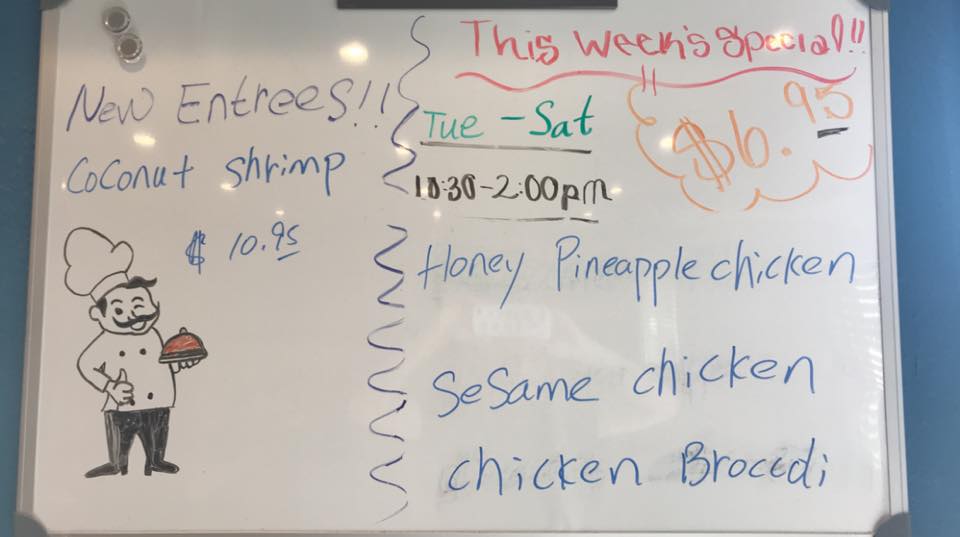 New Entrees!!
Coconut shrimp
$ 10.95
This Week's Special!!
$6.95
Tue - Sat
10:30-2:00pm
Honey Pineapple chicken
Sesame chicken
chicken Broccoli